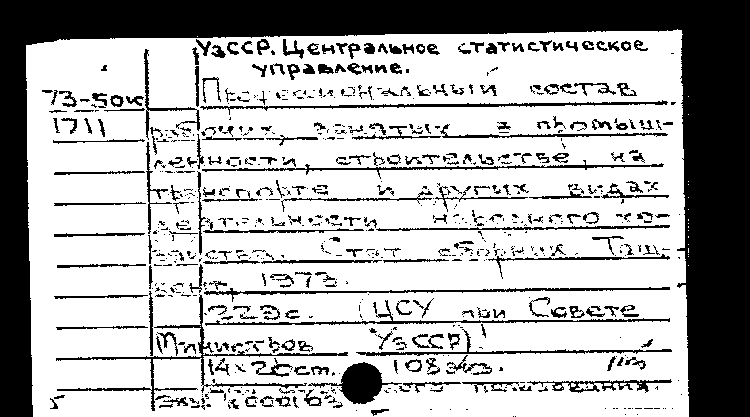 УзССР. Центральное статистическое
управление.
73-50к Профессиональный состав
1711 рабочих, занятых в промыш-
ленности, строительстве, на
транспорте и других видах
деятельности народного хо-
зяйства. Стат. сборник. Таш-
кент, 1973.
223с. (ЦСУ при Совете
Министров УзССР).
14x20см. 108экз.
пользования.